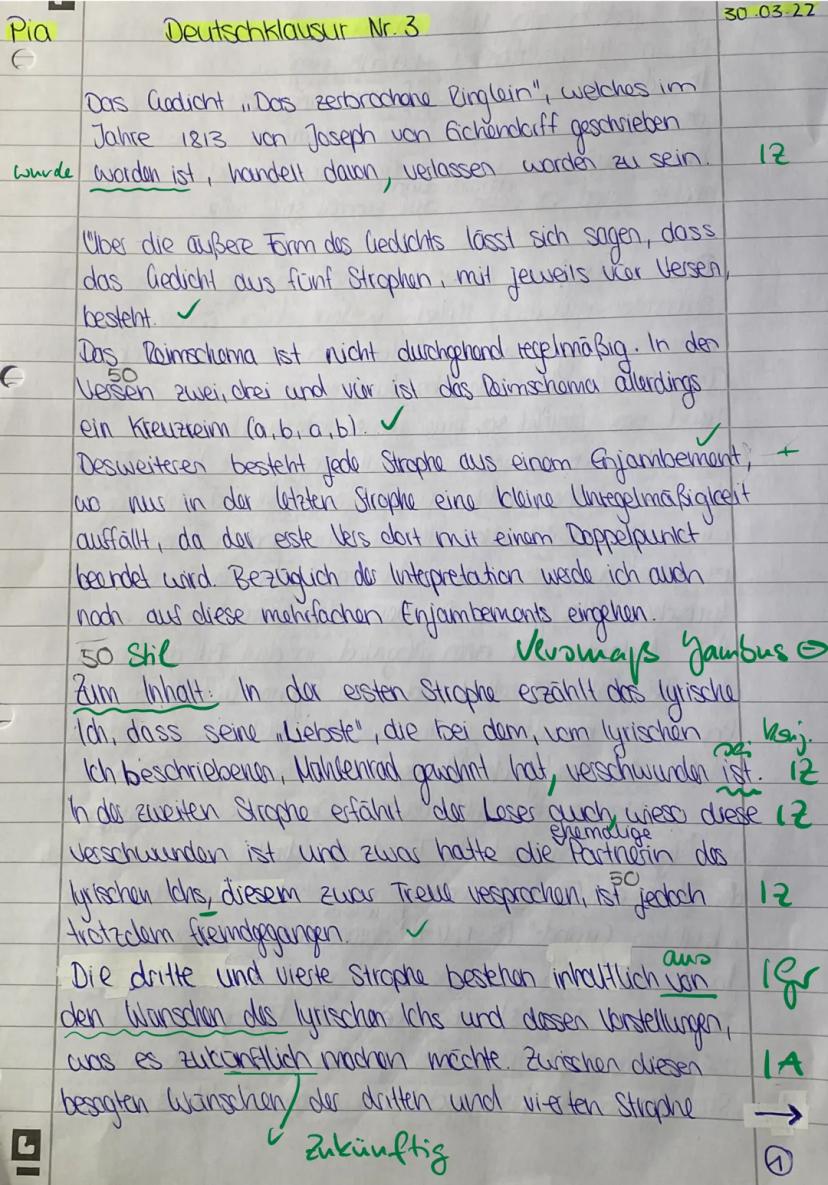 Pia Deutschklausur Nr. 3 30.03.22
Das Gedicht „Das zerbrochene Ringlein", welches im
Jahre 1813 von Joseph von Eichendorff geschrieben
wurde worden ist, handelt davon, verlassen worden zu sein. 1Z
Über die äußere Form des Gedichts lässt sich sagen, dass
das Gedicht aus fünf Strophen, mit jeweils vier Versen,
besteht. ✓
Das Reimschema ist nicht durchgehend regelmäßig. In den
50
Versen zwei, drei und vier ist das Reimschema allerdings
ein Kreuzreim (a, b, a, b). ✓
Desweiteren besteht jede Strophe aus einem Enjambement, ✓ +
wo nur in der letzten Strophe eine kleine Unregelmäßigkeit
auffällt, da der este Vers dort mit einem Doppelpunkt
beendet wird. Bezüglich der Interpretation werde ich auch
noch auf diese mehrfachen Enjambements eingehen.
50 Stil Versmaß Jambus ⊖
Zum Inhalt: In der ersten Strophe erzählt das lyrische
Ich, dass seine „Liebste", die bei dem, vom lyrischen Konj.
sei
Ich beschriebenen, Mühlenrad gewohnt hat, verschwunden ist. 1Z
In der zweiten Strophe erfährt der Leser auch, wieso diese 1Z
ehemalige
verschwunden ist und zwar hatte die Partnerin des
50
lyrischen Ichs, diesem zwar Treue versprochen, ist jedoch 1Z
trotzdem fremdgegangen. ✓
aus
Die dritte und vierte Strophe bestehen inhaltlich von 1Gr
den Wünschen des lyrischen Ichs und dessen Vorstellungen,
was es zukünftlich machen möchte. Zwischen diesen 1A
besagten Wünschen / der dritten und vierten Strophe →
✓ Zukünftig 1